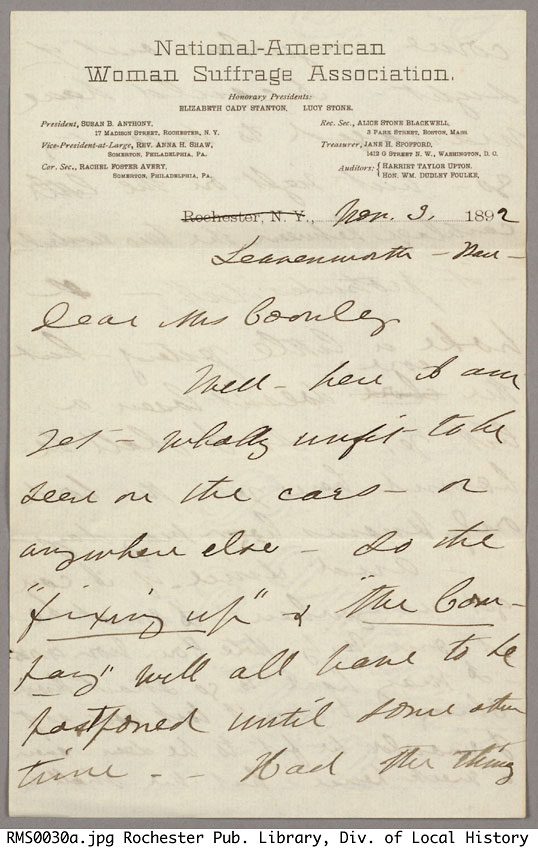 National-American
Woman Suffrage Association.
Honorary Presidents:
ELIZABETH CADY STANTON, LUCY STONE.
President, SUSAN B. ANTHONY,
17 MADISON STREET, ROCHESTER, N. Y.
Vice-President-at-Large, REV. ANNA H. SHAW,
SOMERTON, PHILADELPHIA, PA.
Cor. Sec., RACHEL FOSTER AVERY,
SOMERTON, PHILADELPHIA, PA.
Rec. Sec., ALICE STONE BLACKWELL,
3 PARK STREET, BOSTON, MASS.
Treasurer, JANE H. SPOFFORD,
1412 G STREET N. W., WASHINGTON, D. C.
Auditors: { HARRIET TAYLOR UPTON,
HON. WM. DUDLEY FOULKE,
Rochester, N. Y., Nov. 3, 1892
Leavenworth - Kan -
Dear Mrs Coonley
Well - here I am
yet - wholly unfit to be
seen on the cars - or
anywhere else - So the
"fixing up" & "the Com-
pany" will all have to be
postponed until some other
time - - Had the thing
RMS0030a.jpg Rochester Pub. Library, Div. of Local History